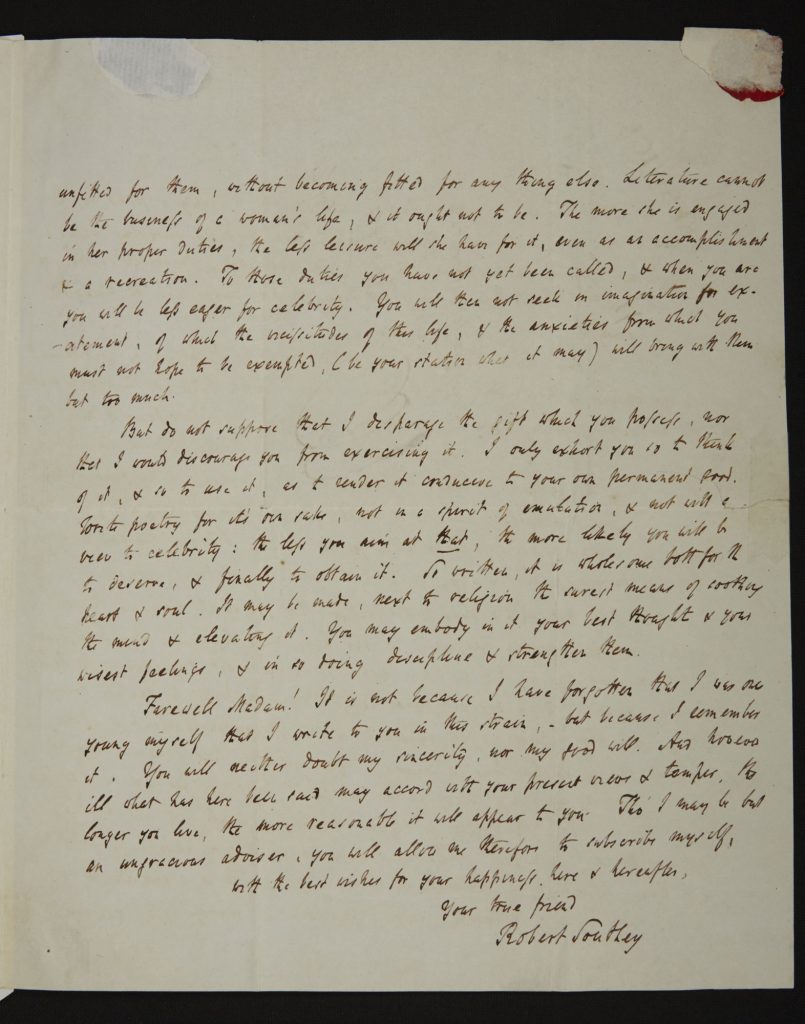 unfitted for them, without becoming fitted for any thing else. Literature cannot
be the business of a woman's life, & it ought not to be. The more she is engaged
in her proper duties, the less leisure will she have for it, even as an accomplishment
& a recreation. To those duties you have not yet been called, & when you are
you will be less eager for celebrity. You will then not seek in imagination for ex-
-citement, of which the vicissitudes of this life, & the anxieties from which you
must not hope to be exempted, (be your station what it may) will bring with them
but too much.
But do not suppose that I disparage the gift which you possess, nor
that I would discourage you from exercising it. I only exhort you so to think
of it, & so to use it, as to render it conducive to your own permanent good.
Write poetry for its own sake, not in a spirit of emulation, & not with a
view to celebrity: the less you aim at that, the more likely you will be
to deserve, & finally to obtain it. So written, it is wholesome both for the
heart & soul. It may be made, next to religion the surest means of soothing
the mind & elevating it. You may embody in it your best thoughts & your
wisest feelings, & in so doing discipline & strengthen them.
Farewell Madam! It is not because I have forgotten that I was once
young myself that I write to you in this strain, - but because I remember
it. You will neither doubt my sincerity, nor my good will. And however
ill what has here been said may accord with your present views & temper, the
longer you live, the more reasonable it will appear to you. Tho' I may be but
an ungracious adviser, you will allow me therefore to subscribe myself,
with the best wishes for your happiness, here & hereafter,
Your true friend
Robert Southey